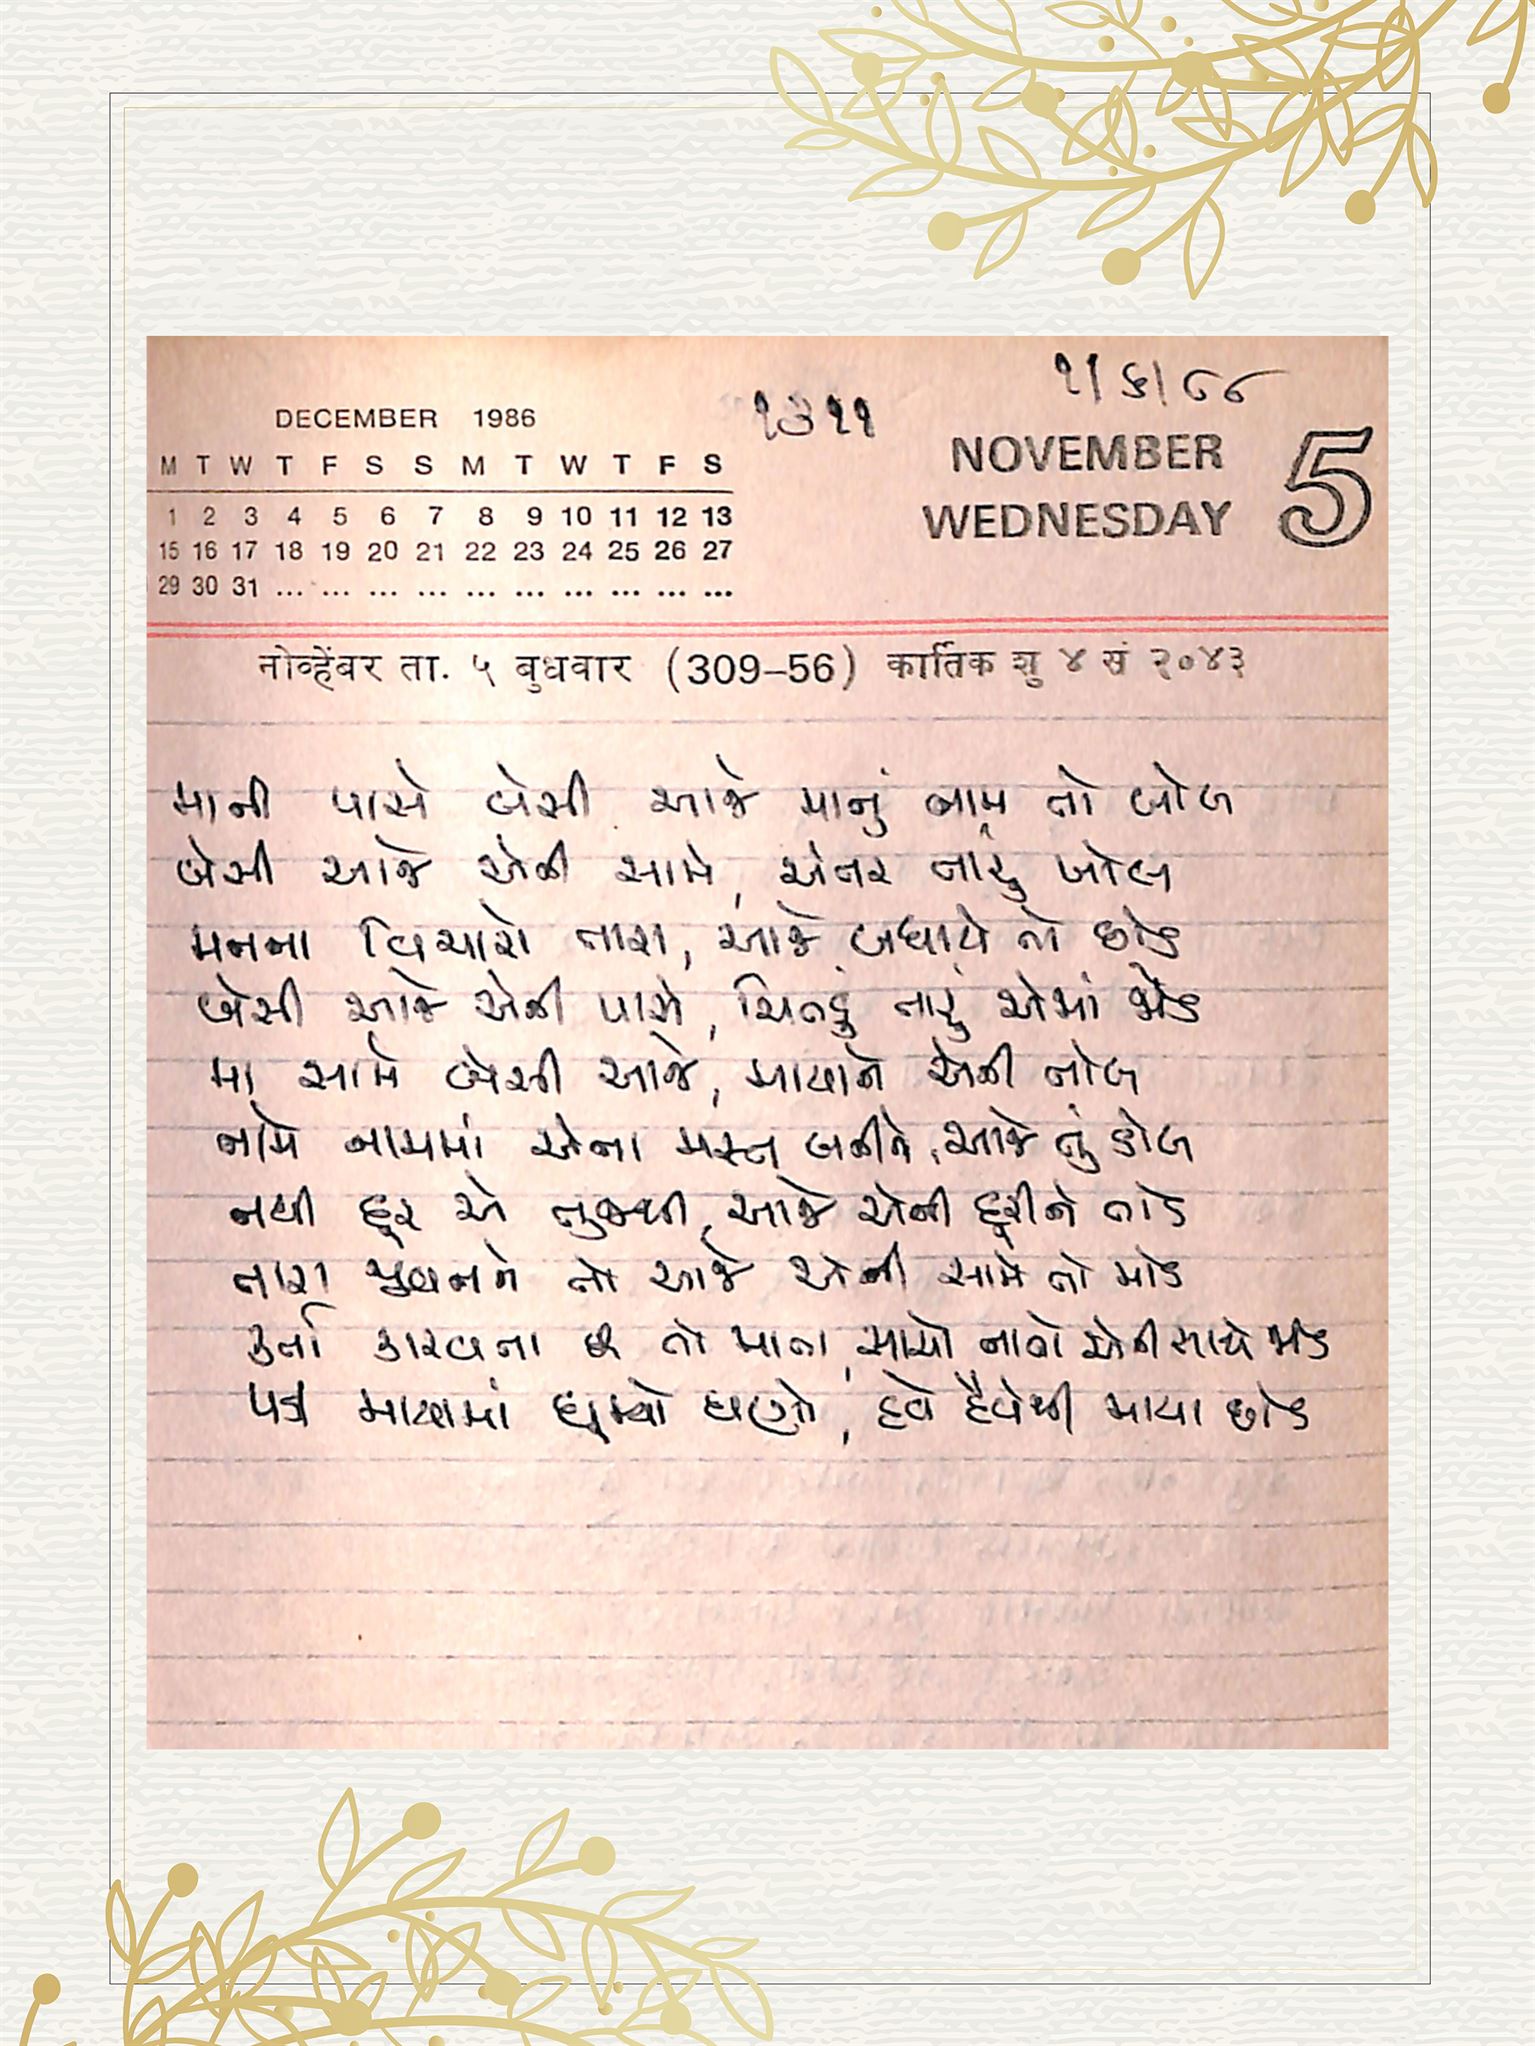 ૧૩૧૧
૧/૬/૮૮
DECEMBER 1986
NOVEMBER 5
WEDNESDAY
M T W T F S S M T W T F S
1 2 3 4 5 6 7 8 9 10 11 12 13
15 16 17 18 19 20 21 22 23 24 25 26 27
29 30 31 ... ... ... ... ... ... ... ... ... ...
नोव्हेंबर ता. ५ बुधवार (309–56) कार्तिक शु ४ सं २०४३
માની પાસે બેસી આજે માનું નામ તો બોલ
બેસી આજે એની સામે, અંતર તારું ખોલ
મનના વિચારો તારા, આજે બધાયે તો છોડ
બેસી આજે એની પાસે, ચિતડું તારું એમાં જોડ
મા સામે બેસી આજે, માયાને એની તોલ
નામે નામમાં એના મસ્ત બનીને, આજે તું ડોલ
નથી દૂર એ તુજથી, આજે એની દૂરીને તોડ
તારા જીવનને તો આજે એની સામે તો મોડ
કર્તા કારવતા છે તો માતા, સાચો નાતો એની સાથે જોડ
પડી માયામાં ઘૂમ્યો ઘણો, હવે હૈયેથી માયા છોડ